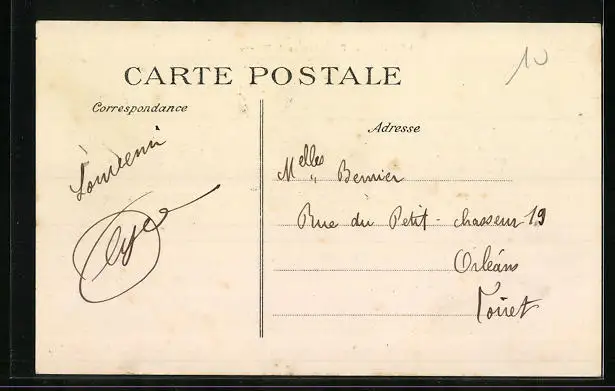 10
CARTE POSTALE
Correspondance
Adresse
Souvenir
Melles Bernier
Rue du Petit-chasseur 19
Orléans
Loiret